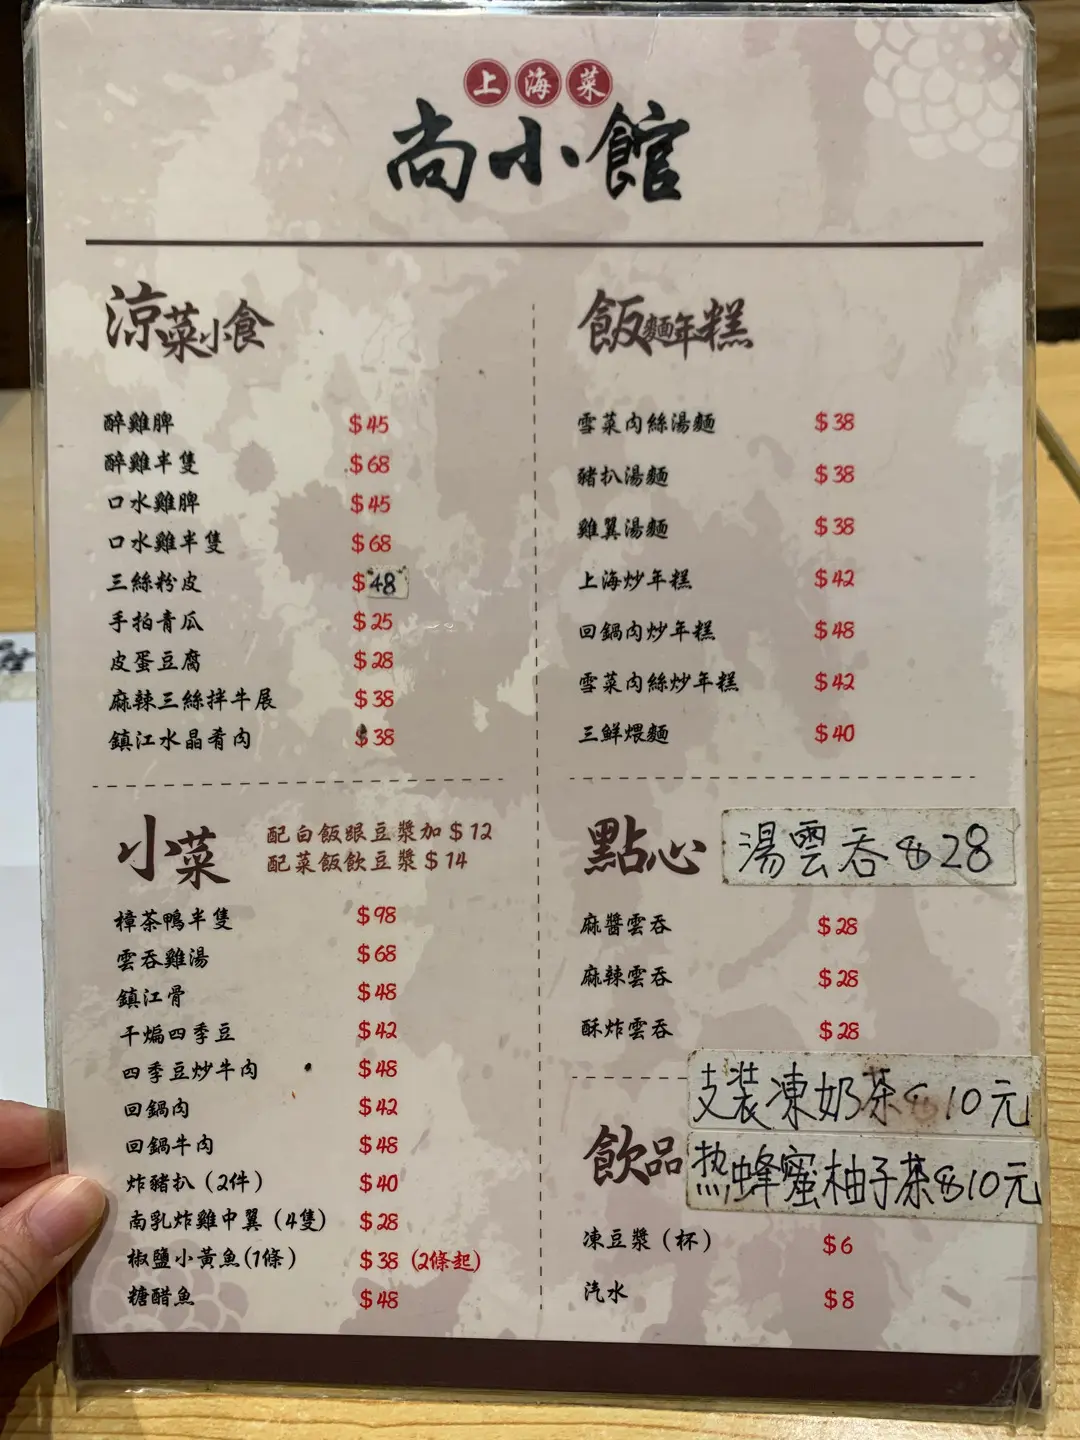 上海菜
尚小館
涼菜小食
醉雞脾 $45
醉雞半隻 $68
口水雞脾 $45
口水雞半隻 $68
三絲粉皮 $48
手拍青瓜 $25
皮蛋豆腐 $28
麻辣三絲拌牛展 $38
鎮江水晶肴肉 $38
小菜
配白飯跟豆漿加$12
配菜飯飲豆漿$14
樟茶鴨半隻 $98
雲吞雞湯 $68
鎮江骨 $48
干煸四季豆 $42
四季豆炒牛肉 $48
回鍋肉 $42
回鍋牛肉 $48
炸豬扒（2件） $40
南乳炸雞中翼（4隻） $28
椒鹽小黃魚(1條） $38 (2條起)
糖醋魚 $48
飯麵年糕
雪菜肉絲湯麵 $38
豬扒湯麵 $38
雞翼湯麵 $38
上海炒年糕 $42
回鍋肉炒年糕 $48
雪菜肉絲炒年糕 $42
三鮮煨麵 $40
點心
湯雲吞$28
麻醬雲吞 $28
麻辣雲吞 $28
酥炸雲吞 $28
支装凍奶茶$10元
飲品
热蜂蜜柚子茶$10元
凍豆漿（杯） $6
汽水 $8